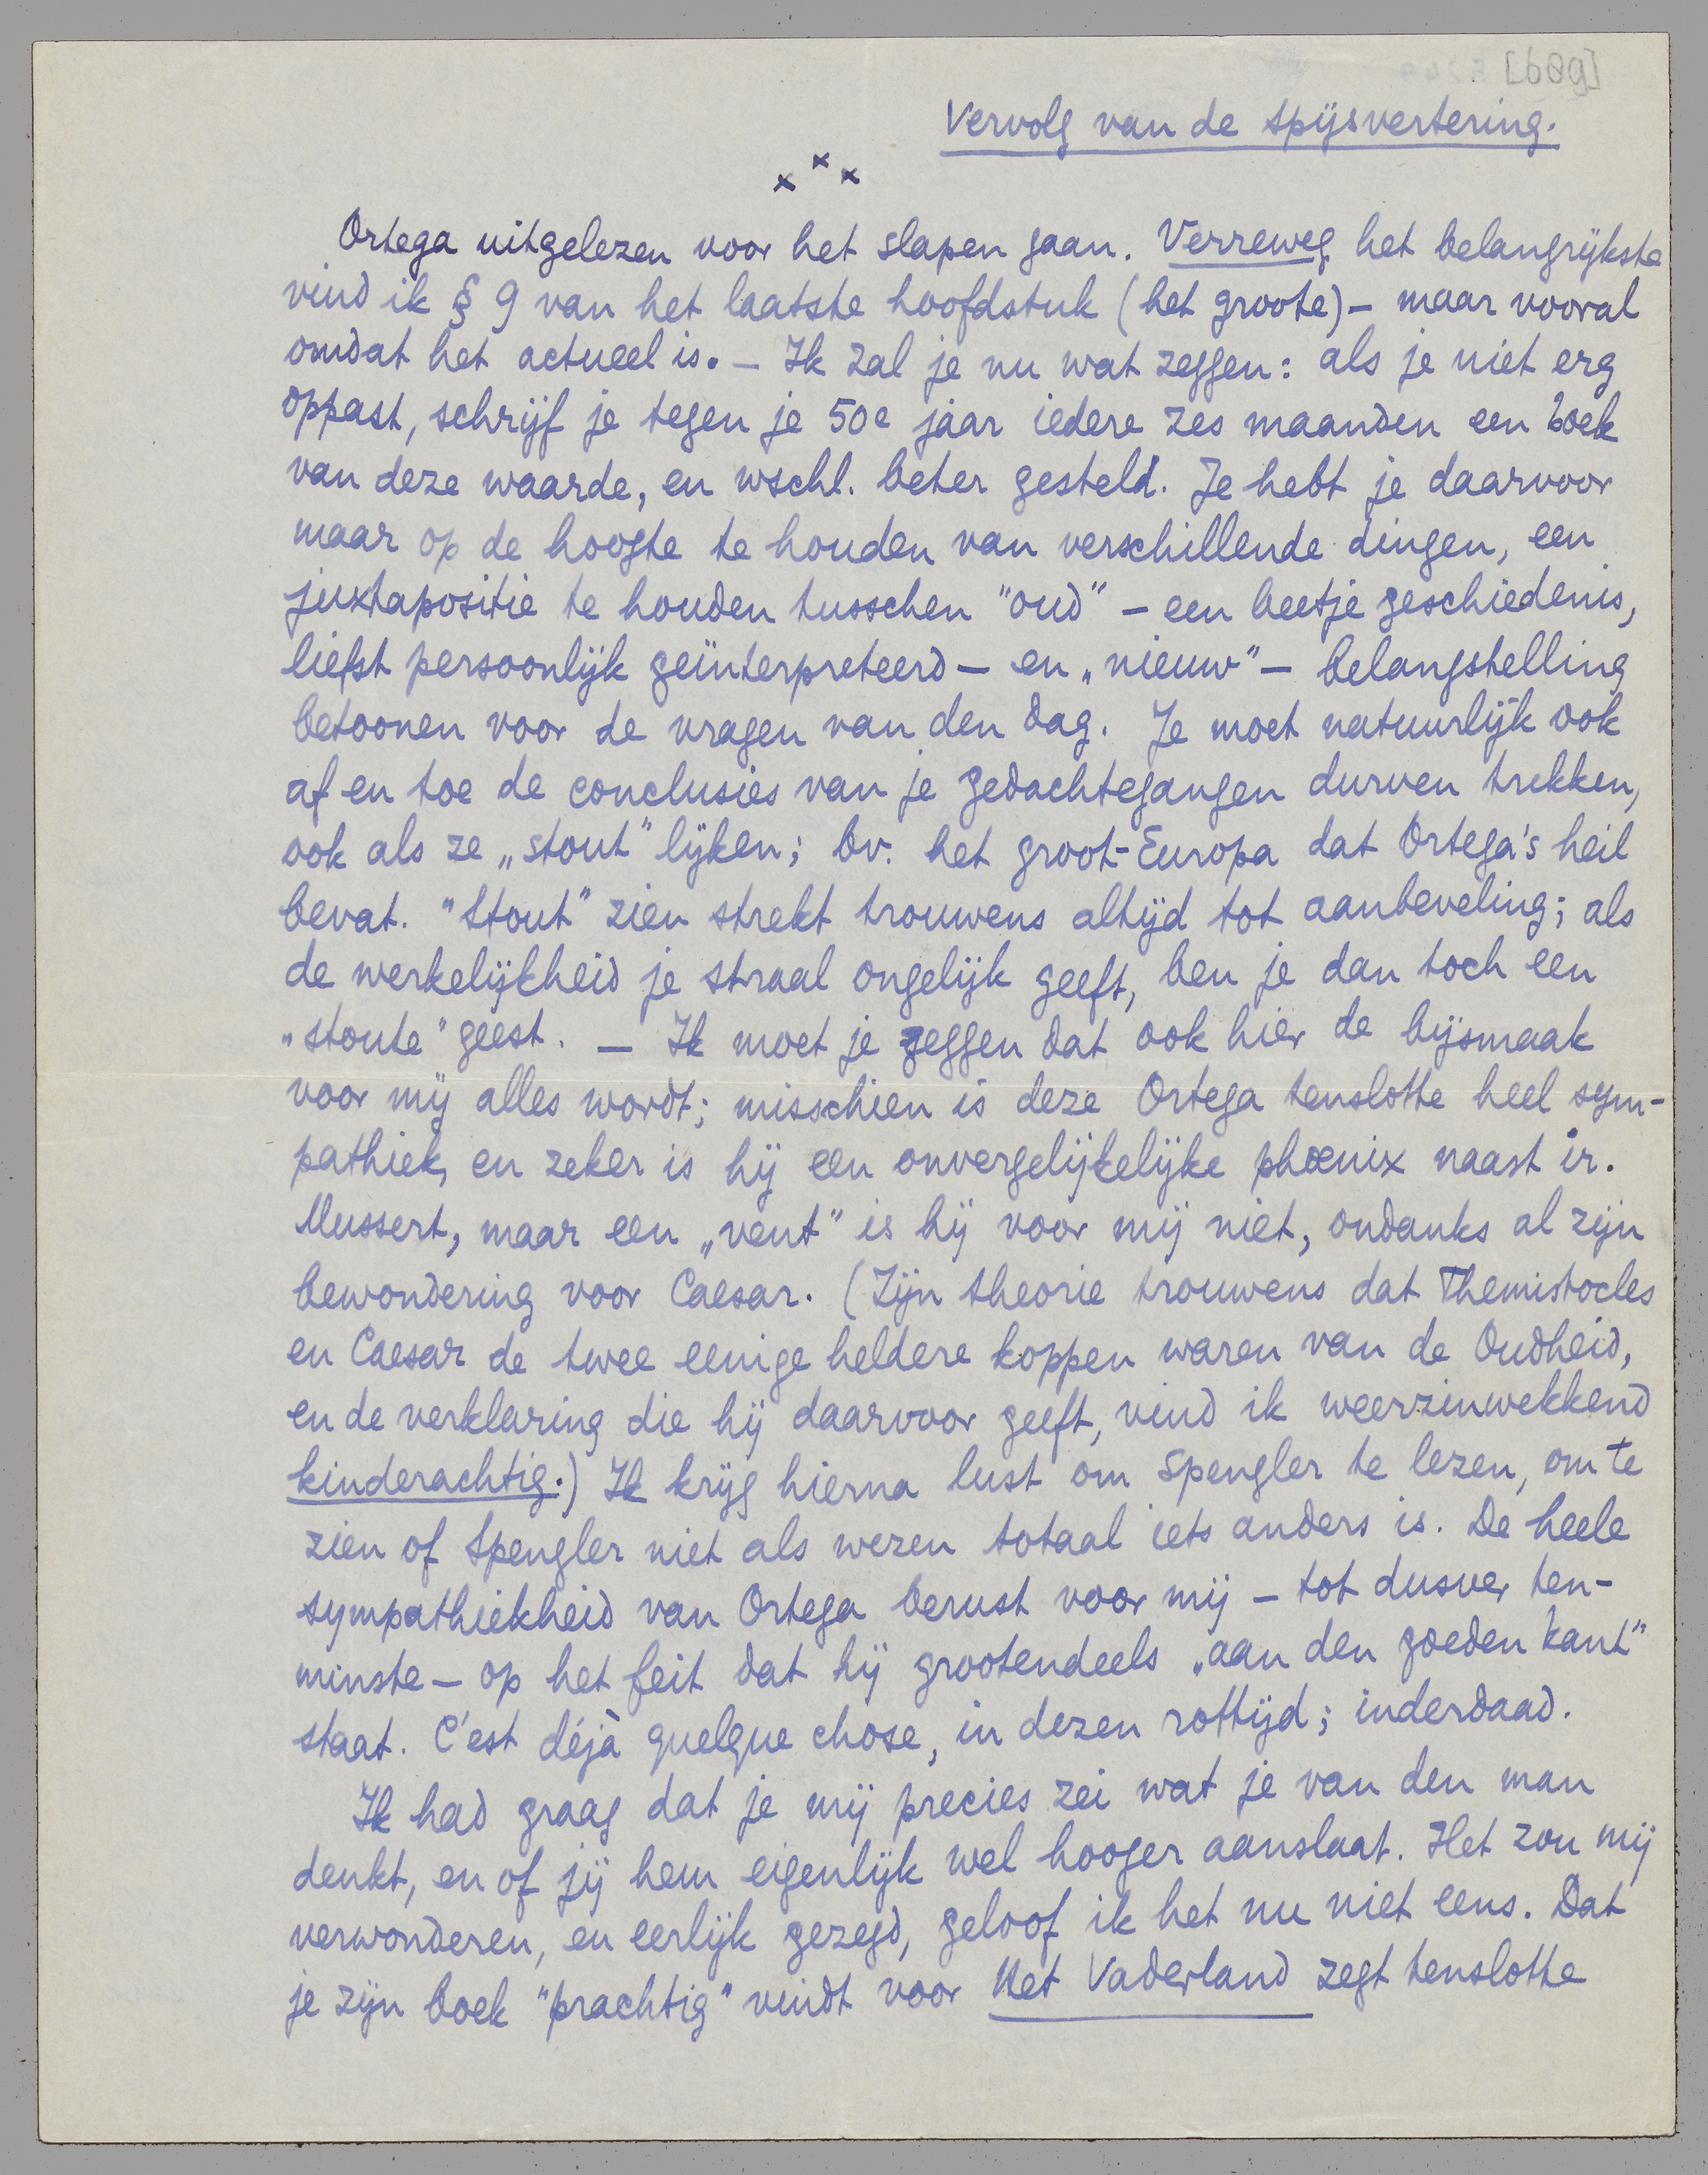 [689]
Vervolg van de spijsvertering.
x x x
Ortega uitgelezen voor het slapen gaan. Verreweg het belangrijkste
vind ik § 9 van het laatste hoofdstuk (het groote) – maar vooral
omdat het actueel is. – Ik zal je nu wat zeggen: als je niet erg
oppast, schrijf je tegen je 50e jaar iedere zes maanden een boek
van deze waarde, en wschl. beter gesteld. Je hebt je daarvoor
maar op de hoogte te houden van verschillende dingen, een
juxtapositie te houden tusschen "oud" – een beetje geschiedenis,
liefst persoonlijk geïnterpreteerd – en „nieuw" – belangstelling
betoonen voor de vragen van den dag. Je moet natuurlijk ook
af en toe de conclusies van je gedachtegangen durven trekken,
ook als ze „stout" lijken; bv. het groot-Europa dat Ortega's heil
bevat. "Stout" zien strekt trouwens altijd tot aanbeveling; als
de werkelijkheid je straal ongelijk geeft, ben je dan toch een
„stoute" geest. – Ik moet je zeggen dat ook hier de bijsmaak
voor mij alles wordt; misschien is deze Ortega tenslotte heel sym-
pathiek, en zeker is hij een onvergelijkelijke phœnix naast ir.
Mussert, maar een „vent" is hij voor mij niet, ondanks al zijn
bewondering voor Caesar. (Zijn theorie trouwens dat Themistocles
en Caesar de twee eenige heldere koppen waren van de Oudheid,
en de verklaring die hij daarvoor geeft, vind ik weerzinwekkend
kinderachtig.) Ik krijg hierna lust om Spengler te lezen, om te
zien of Spengler niet als wezen totaal iets anders is. De heele
sympathiekheid van Ortega berust voor mij – tot dusver ten-
minste – op het feit dat hij grootendeels „aan den goeden kant"
staat. C'est déjà quelque chose, in dezen rottijd; inderdaad.
Ik had graag dat je mij precies zei wat je van den man
denkt, en of jij hem eigenlijk wel hooger aanslaat. Het zou mij
verwonderen, en eerlijk gezegd, geloof ik het nu niet eens. Dat
je zijn boek "prachtig" vindt voor Het Vaderland zegt tenslotte